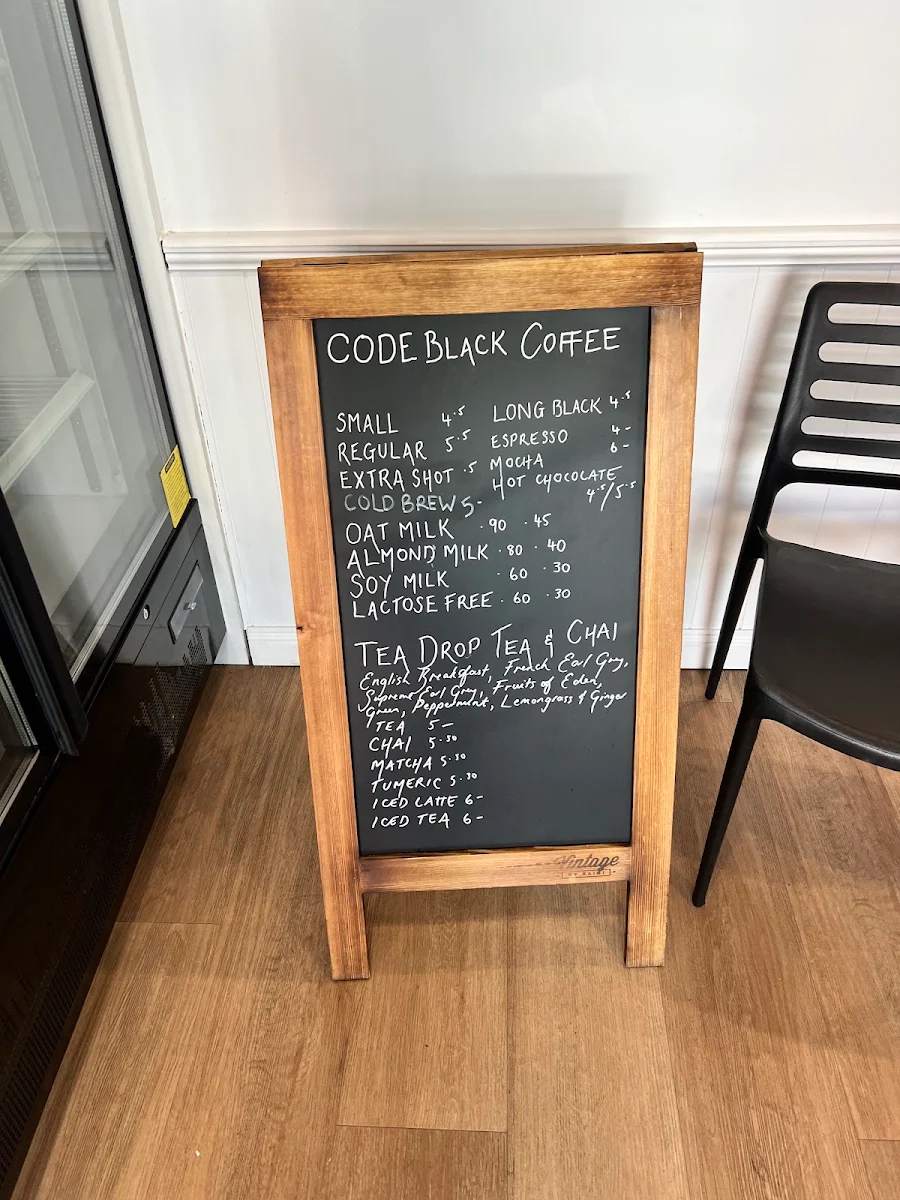 CODE BLACK COFFEE
SMALL 4.5
REGULAR 5.5
EXTRA SHOT .5
COLD BREW 5-
LONG BLACK 4.5
ESPRESSO 4-
MOCHA 6-
HOT CHOCOLATE
4.5/5.5
OAT MILK .90 .45
ALMOND MILK .80 .40
SOY MILK .60 .30
LACTOSE FREE .60 .30
TEA DROP TEA & CHAI
English Breakfast, French Earl Grey,
Supreme Earl Grey, Fruits of Eden,
Green, Peppermint, Lemongrass & Ginger
TEA 5-
CHAI 5.50
MATCHA 5.50
TUMERIC 5.50
ICED LATTE 6-
ICED TEA 6-
Vintage